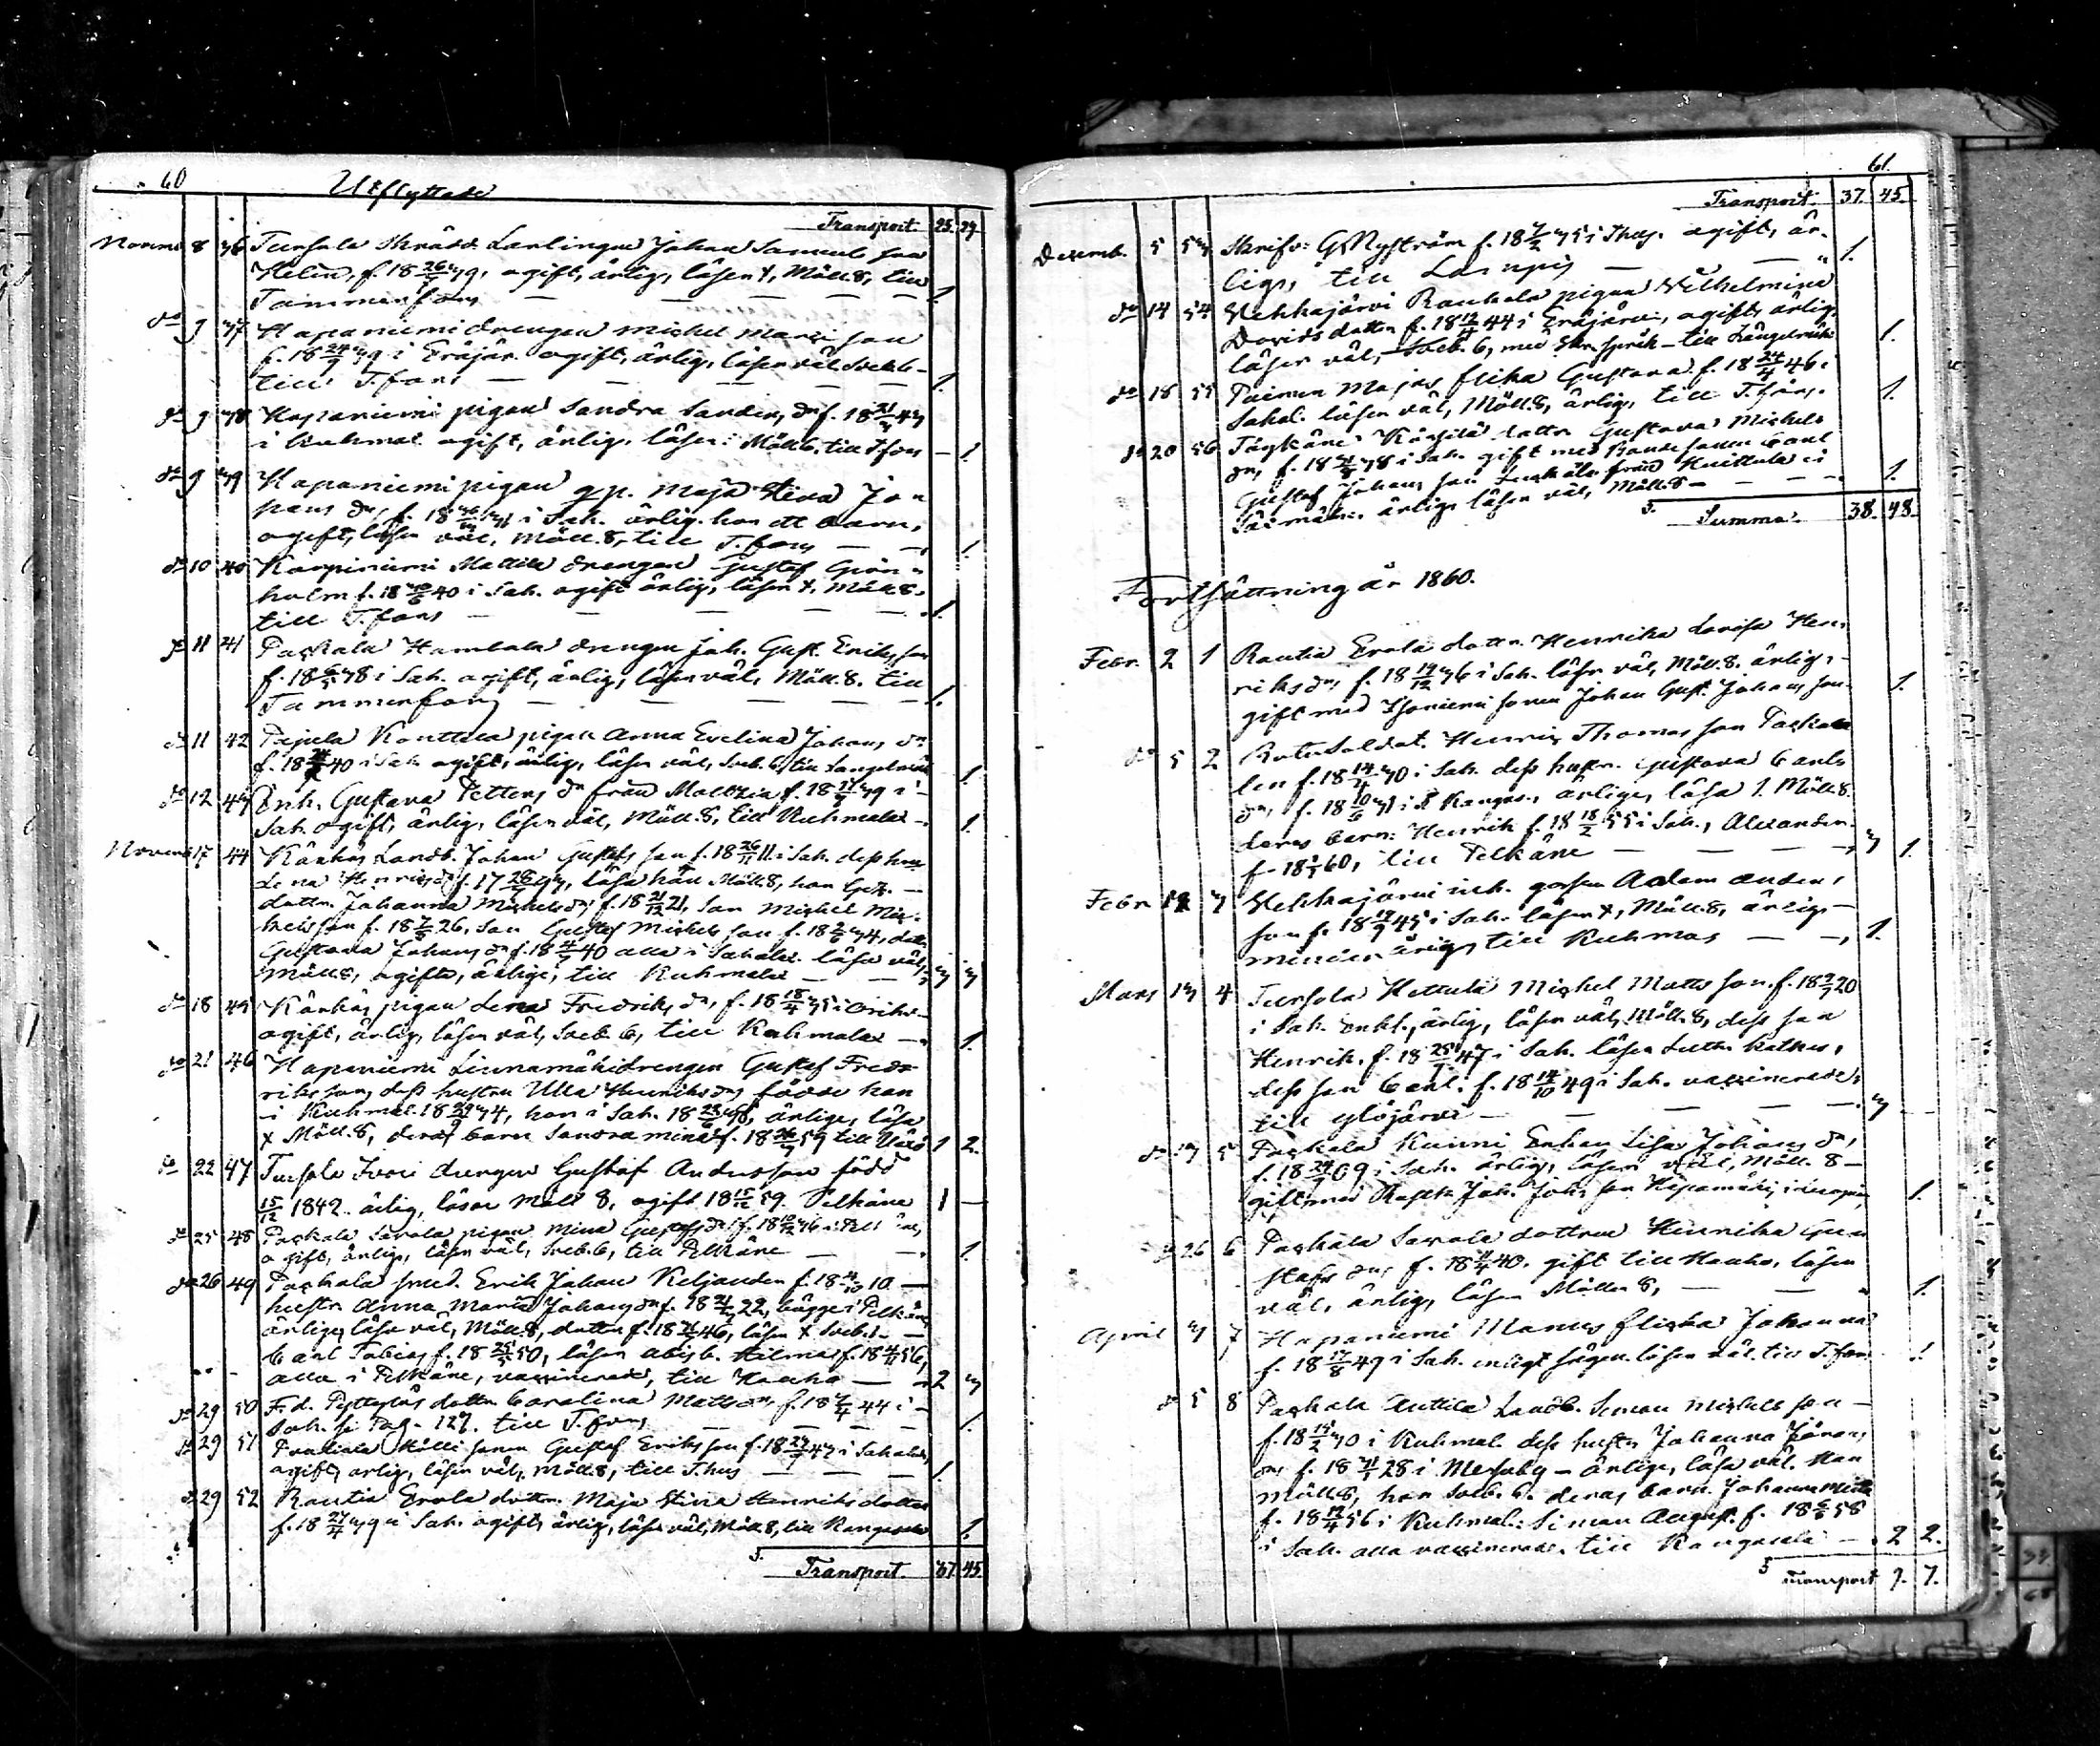 60
Utflyttade
Transport 25. 29.
Novemb 8 36 Tursola Skrädd. Lärlingen Johan Samuels son
Helin, f. 18 26/5 39, ogift, ärlig, läser x, Möll. 8, till
Tammerfors — — — — — 1.
do 9 37 Haapaniemi drengen Michel Marci son
f. 18 24/9 39 i Eräjär. ogift, ärlig, läser väl Sveb. 6 -
till T.fors — — — — — 1.
do 9 38 Haapaniemi pigan Sandra Sanders dr f. 18 21/3 43
i Kuhmal. ogift, ärlig, läser: Möll. 6, till T.fors — 1.
do 9 39 Hapaniemi pigan q.p. Maja Stina Jo-
hans dr, f. 18 31 i Sah. ärlig. har ett barn,
ogift, läser väl, Möll. 8, till T.fors — — 1.
do 10 40 Karppiniemi Mattila drengen Gustaf Grön-
holm f. 18 40 i Sah. ogift ärlig, läser x, Möll. 8.
till T.fors — — — — 1.
do 11 41 Paskala Hambala drengen Joh. Gust. Eriks son
f. 18 6/5 38 i Sah. ogift, ärlig, läser väl, Möll. 8. till
Tammerfors — — — — 1.
do 11 42 Pajula Konttila pigan Anna Evelina Johans dr
f. 18 40 i Sah. ogift, ärlig, läser väl, Sveb. 6, till Längelmäki 1.
do 12 43 Enk. Gustava Petters dr från Mattila f. 18 39 i -
Sah. ogift, ärlig, läser väl, Möll. 8, till Kuhmalax - 1.
Novemb 17 44 Känkäs Landb. Johan Gustafs son f. 18 26/11 11. i Sah. dess hust.
Lena Henriks dr f. 17 28 93, läsa han Möll. 8, hon Gez. —
dottr. Johanna Michels dr f. 18 21/12 21, Son Michel Mic-
kels son f. 18 7/5 26, son Gustaf Michels son f. 18 2/6 34, dottr
Gustava Johans dr f. 18 4/5 40 alla i Sahalax. läsa väl,
Möll. 8, ogifta, ärliga, till Kuhmalax — — 3 3
do 18 45 Känkäs pigan Lena Fredriks dr, f. 18 18/4 35 i Orihv.
ogift, ärlig, läser väl, Sveb. 6, till Kuhmalax — 1.
do 21 46 Hapaniemi Linnamäki drengen Gustaf Fred-
riks son, dess hustru Ulla Henriks dr födde han
i Kuhmal. 18 34, hon i Sah. 18 38, ärliga, läsa
x Möll. 8, deras barn Sandra Mina f. 18 59 till 1 2.
do 22 47 Tursola Iso drengen Gustaf Andersson född
15/12 1842. ärlig, läser Möll 8, ogift 18 15/12 59. Pelkäne 1 —
do 25 48 Paskala Savola pigan Mina Gustafs dr f. 18 10/12 36 i Pelkäne,
ogift, ärlig, läser väl, Sveb. 6, till Pelkäne — — 1.
do 26 49 Paskala smed. Erik Johan Keljander f. 18 4/10 10. —
hustr. Anna Maria Johans dr f. 18 21/3 22, bägge i Pelkäne
ärliga, läsa väl, Möll. 8, dotter f. 18 46, läser x Sveb. 1. —
Carl Tobias f. 18 25/5 50, läser abis b. Hilma f. 18 4/11 56,
alla i Pelkäne, vaccinerade, till Hauho — 2 3
do 29 50 F. d. Pyttylus dotter Carolina Matts dr, f. 18 7/4 44 i -
Sah. se Pag. 127. till T.fors — — — 1.
do 29 51 Prakala Mölli sonen Gustaf Eriks son f. 18 43 i Sahalax,
ogift, ärlig, läser väl, Möll. 8, till T.hus — — — 1.
do 29 52 Rautia Erola dottr. Maja Stina Henriks dotter
f. 18 27/4 39 i Sah. ogift, ärlig, läser väl, Möll. 8, till Kangasala 1.
Transport. 37. 45.
61.
Transport. 37. 45.
Decemb. 5 53 Skrifv: G Nyström f. 18 7/2 35 i Thus. ogift, är-
lig, till Lampis — — 1. "
do 14 54 Vehkajärvi Rauhala pigan Wilhelmina
Davids dotter f. 18 12/4 44 i Eräjärvi, ogift, ärlig,
läser väl, Sveb. 6, med Skr. språk - till Längelmäki 1.
do 18 55 Painen Majas flicka Gustava f. 18 24/4 46 i
Sahal. läser väl, Möll. 8, ärlig, till T.fors. 1.
do 20 56 Tägkäne Körsilä dottr. Gustava Michels
dr, f. 18 38 i Sah. gift med Bondesonen Carl
Gustaf Johans son från Huittula i
Säxmäki. ärlig, läser väl, Möll. 8 — — — 1.
Summa. 38. 48.
Fortsättning år 1860.
Febr. 2 1 Rautia Erola dottr. Henrika Lovisa Hen-
riks dr, f. 18 19/12 36 i Sah. läser väl, Möll. 8. ärlig, -
gift med Isoniemi sonen Johan Gust. Johans son 1.
do 5 2 Rote Soldat. Henric Thomas son Paskala
len f. 18 14/11 30 i Sah. dess hustr. Gustava Carls
dr, f. 18 10/6 31 i Kangas., ärliga, läsa 1. Möll. 8.
deras barn: Henrik f. 18 18/2 55 i Sah., Alexander.
f. 18 60, till Pelkäne — — — 3 1.
Febr. 12 3 Vehkajärvi inh. gossen Adam Anders
son f. 18 12/9 45 i Sah. läser x, Möll. 8, ärlig, -
minderårig, till Kuhmois — — 1.
Mars 13 4 Tursola Hettula Michel Matts son. f. 18 20
i Sah. Enkl., ärlig, läser väl, Möll. 8, dess son
Henrik, f. 18 25 47 i Sah. läser Luth. kathes,
dess son Carl. f. 18 14/10 49 i Sah. vaccinerade,
till Ylöjärvi — — — — — 3 —
do 17 5 Paskala Kunni Enkan Lisa Johans dr,
f. 18 29 09 i Sah. ärlig, läser väl, Möll. 8 —
gift med Joh. Johs son i Luopiois, 1.
do 26 6 Paskala Savola dottren Henrika Gu-
stafs dr, f. 18 40. gift till Hauho, läser
väl, ärlig, läser Möller 8, — — 1.
April 3 7 Hapaniemi Manus flicka Johanna
f. 18 17/8 49 i Sah. enligt sägen läser väl till T.fors 1.
do 5 8 Paskala Anttila Landb. Simon Michels son —
f. 18 15/2 30 i Kuhmal. dess hustr. Johanna Jöran,
dr f. 18 28 i Messuby — ärliga, läsa väl. Han
Möll. 8, hon Sveb. 6. deras barn. Johanna Mina
f. 18 12/4 56 i Kuhmal.: Simon August. f. 18 6/5 58
i Sah. alla vaccinerade. till Kangasala — 2 2.
Transport 9. 7.